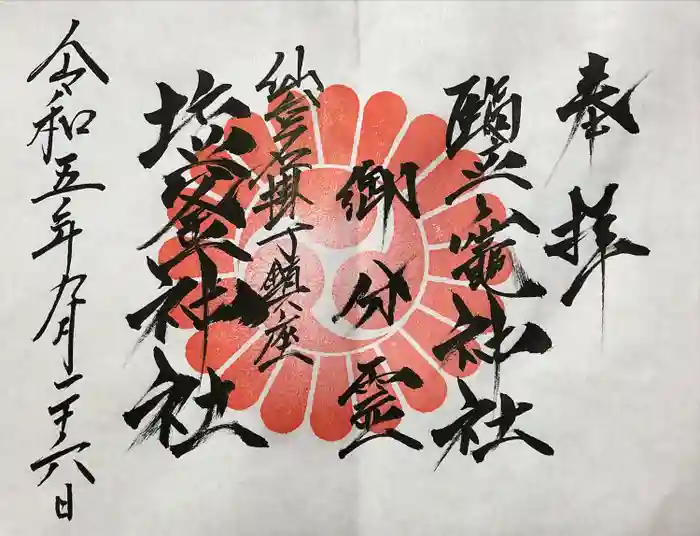 奉拝
鹽竈神社
御分霊
釜石掛丁鎮座
塩釜神社
令和五年九月二十六日